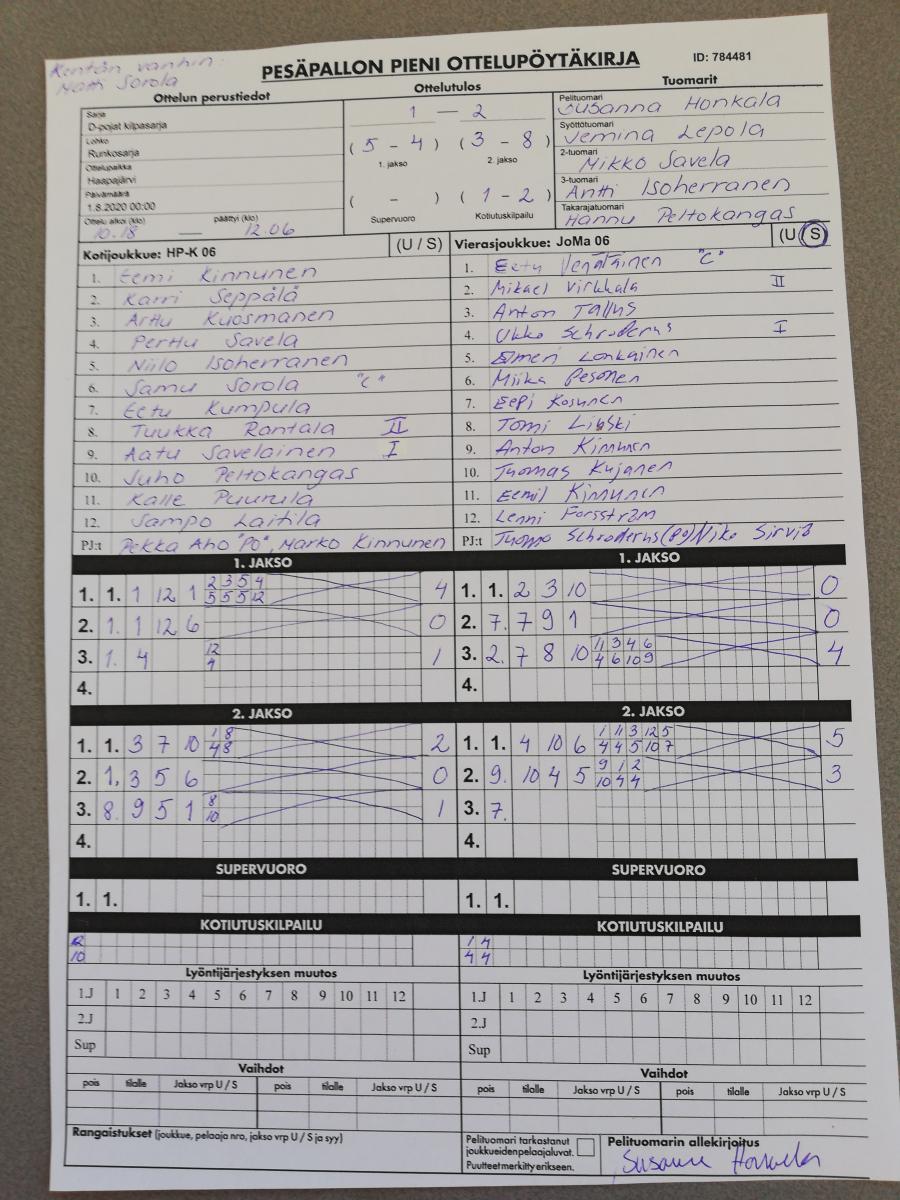 Kentän vanhin:
Matti Sorola
PESÄPALLON PIENI OTTELUPÖYTÄKIRJA
ID: 784481
Ottelun perustiedot
Sarja
D-pojat kilpasarja
Lohko
Runkosarja
Ottelupaikka
Haapajärvi
Päivämäärä
1.8.2020 00:00
Ottelu alkoi (klo) päättyi (klo)
10.18 — 12.06
Ottelutulos
1 — 2
(5 - 4) (3 - 8)
1. jakso 2. jakso
( - ) (1 - 2)
Supervuoro Kotiutuskilpailu
Tuomarit
Pelituomari
Susanna Honkala
Syöttötuomari
Jemina Lepola
2-tuomari
Mikko Savela
3-tuomari
Antti Isoherranen
Takarajatuomari
Hannu Peltokangas
Kotijoukkue: HP-K 06 (U / S)
1. Eemi Kinnunen
2. Karri Seppälä
3. Arttu Kuosmanen
4. Perttu Savela
5. Niilo Isoherranen
6. Samu Sorola "C"
7. Eetu Kumpula
8. Tuukka Rantala II
9. Aatu Savelainen I
10. Juho Peltokangas
11. Kalle Puurula
12. Sampo Laitila
PJ:t Pekka Aho "PO", Marko Kinnunen
Vierasjoukkue: JoMa 06 (U / S)
1. Eetu Venäläinen "C"
2. Mikael Virkkala II
3. Anton Tallus
4. Ukko Schroderus I
5. Elmeri Lonkainen
6. Miika Pesonen
7. Eepi Kosunen
8. Tomi Lipski
9. Anton Kinnunen
10. Tuomas Kujanen
11. Eemil Kinnunen
12. Lenni Forsström
PJ:t Tuomo Schroderus (PO) Niko Sirviö
1. JAKSO
1. 1. 1 12 1 2 3 5 4 4
5 5 5 12
2. 1. 1 12 6 0
3. 1. 4 12 1
4
4.
2. JAKSO
1. 1. 3 7 10 1 8 2
4 8
2. 1. 3 5 6 0
3. 8. 9 5 1 8 1
10
4.
SUPERVUORO
1. 1.
KOTIUTUSKILPAILU
10
1. JAKSO
1. 1. 2 3 10 0
2. 7. 7 9 1 0
3. 2. 7 8 10 11 3 4 6 4
4 6 10 9
4.
2. JAKSO
1. 1. 4 10 6 1 11 3 12 5 5
4 4 5 10 7
2. 9. 10 4 5 9 1 2 3
10 4 4
3. 7.
4.
SUPERVUORO
1. 1.
KOTIUTUSKILPAILU
1 4
4 4
Lyöntijärjestyksen muutos
1.J 1 2 3 4 5 6 7 8 9 10 11 12
2.J
Sup
Vaihdot
pois tilalle Jakso vrp U / S pois tilalle Jakso vrp U / S
Rangaistukset (joukkue, pelaaja nro, jakso vrp U / S ja syy)
Lyöntijärjestyksen muutos
1.J 1 2 3 4 5 6 7 8 9 10 11 12
2.J
Sup
Vaihdot
pois tilalle Jakso vrp U / S pois tilalle Jakso vrp U / S
Pelituomari tarkastanut
joukkueiden pelaajaluvat.
Puutteet merkitty erikseen.
Pelituomarin allekirjoitus
Susanna Honkala